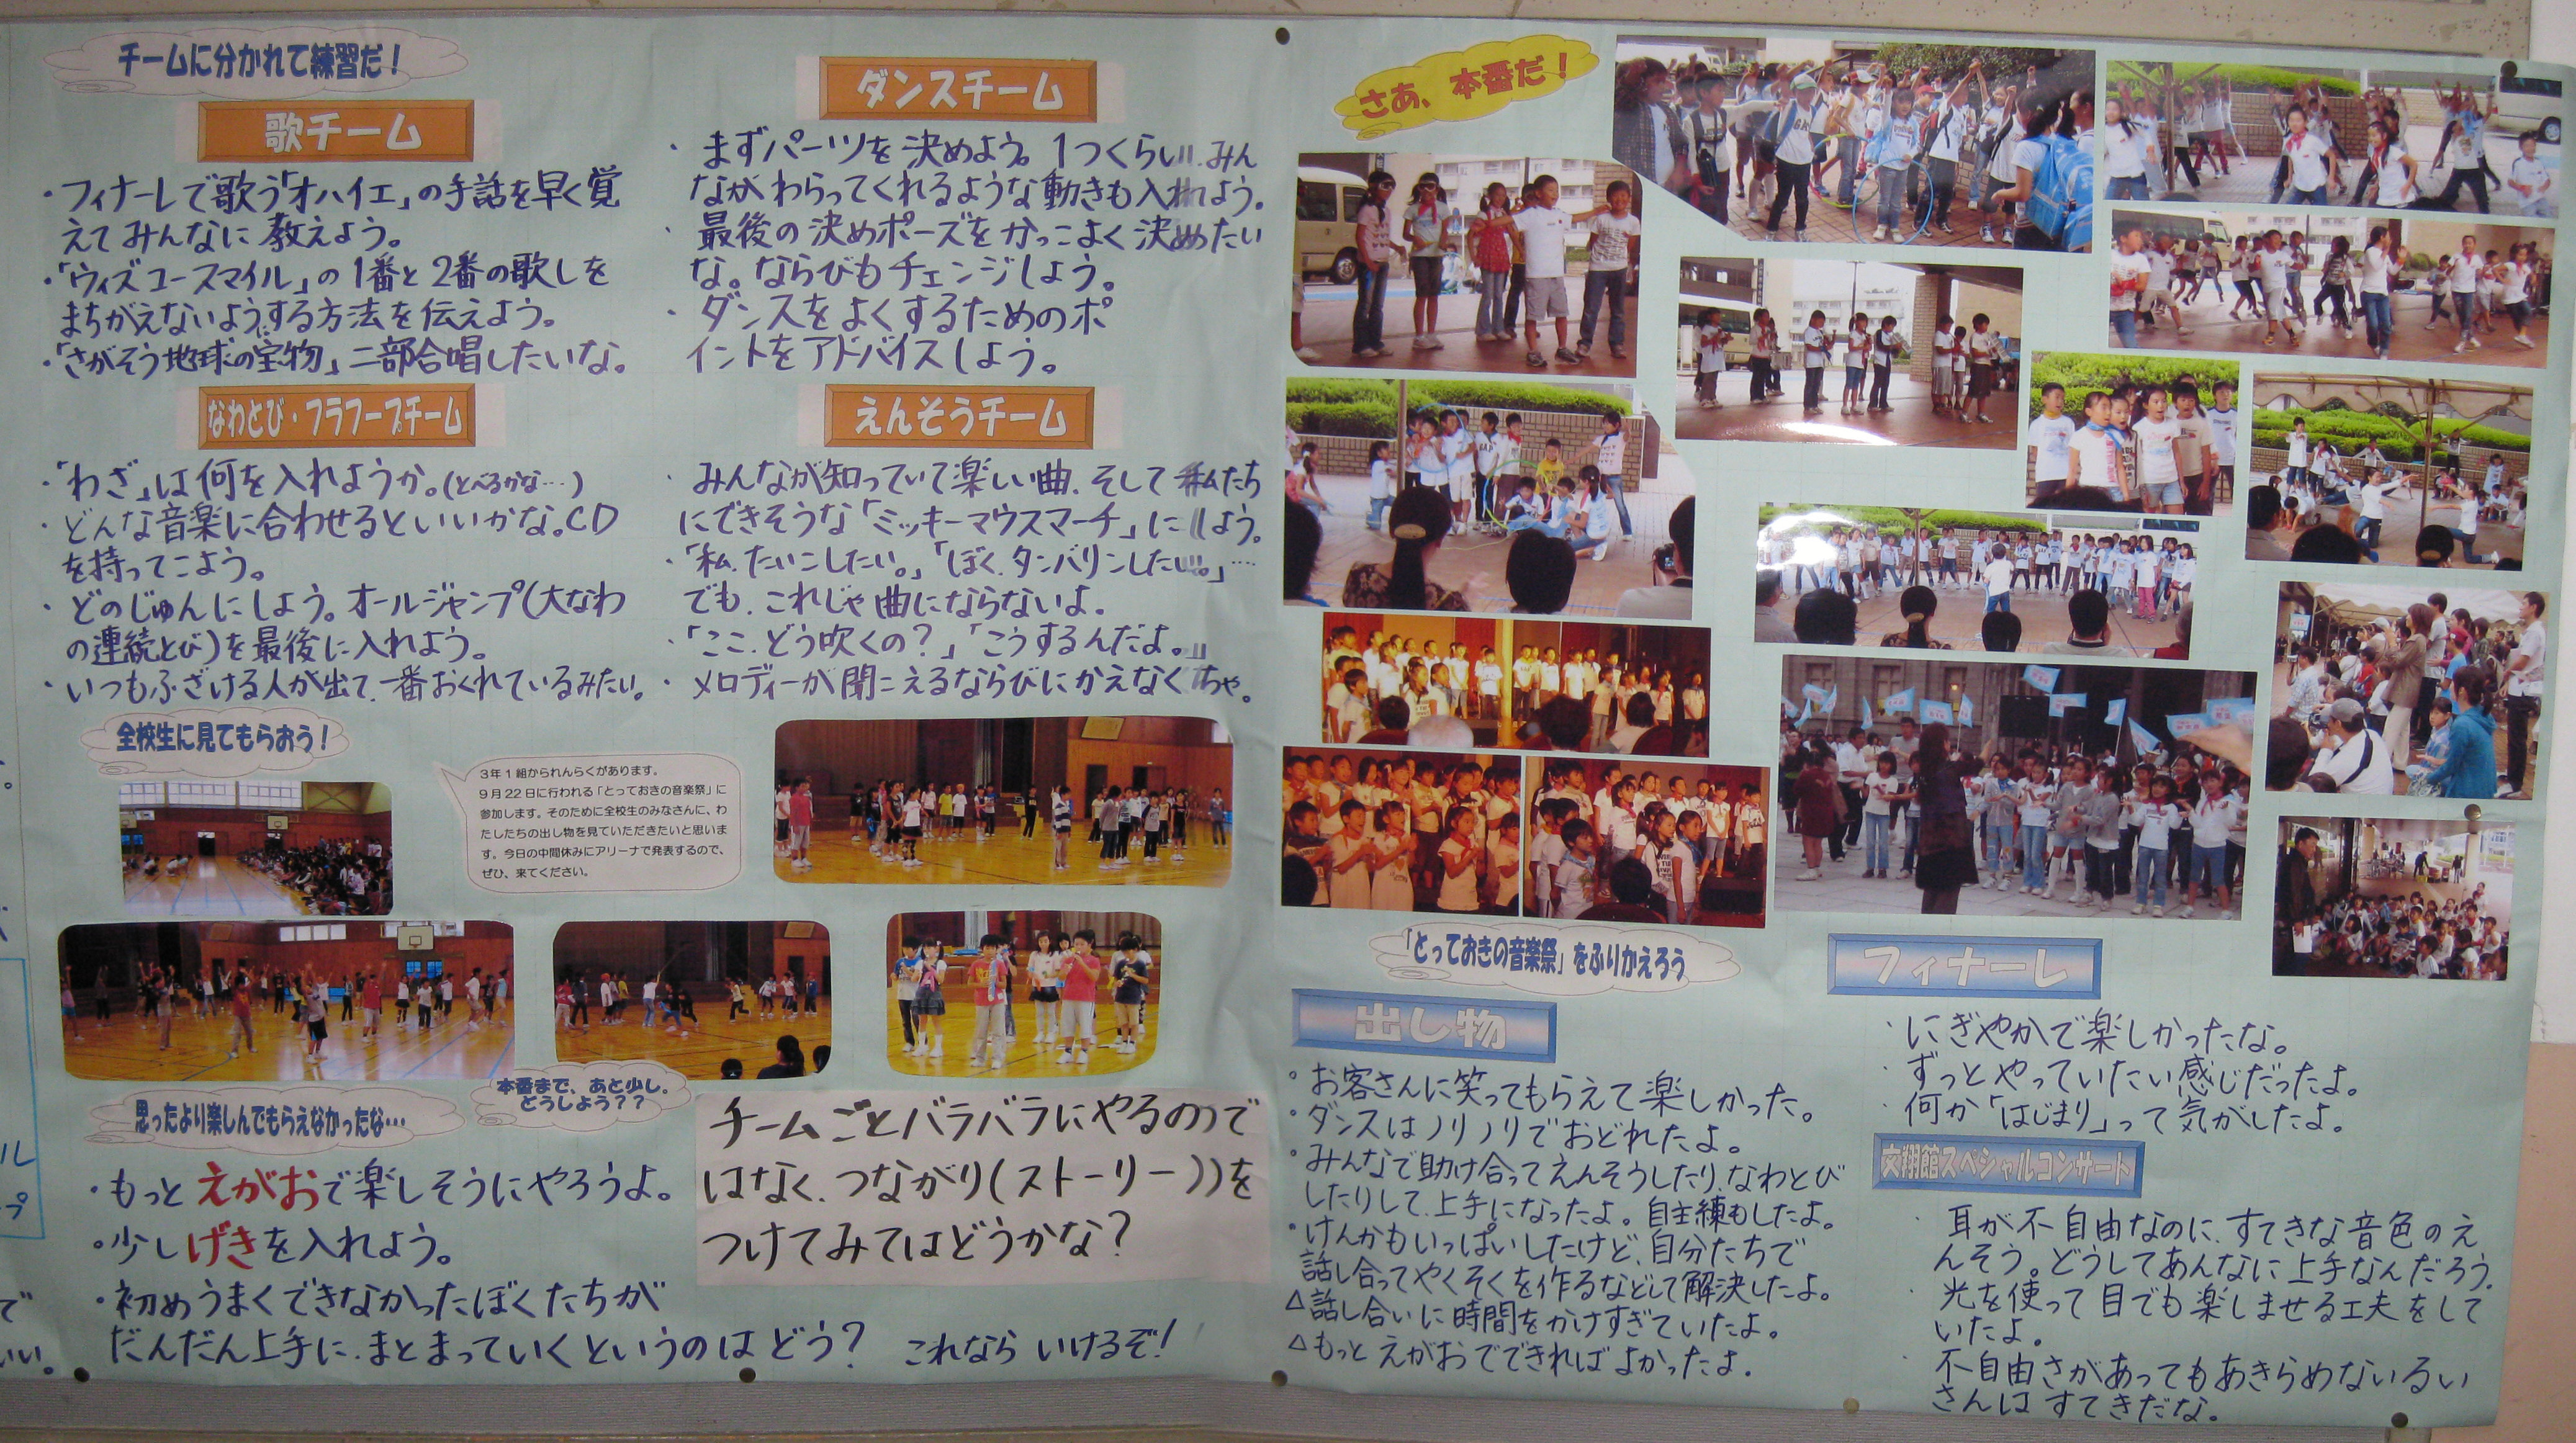 チームに分かれて練習だ！
歌チーム
・フィナーレで歌う「オハイエ」の手話を早く覚
えてみんなに教えよう。
・「ウィズユースマイル」の1番と2番の歌しを
まちがえないようする方法を伝えよう。
・「さがそう地球の宝物」二部合唱したいな。
なわとび・フラフープチーム
・「わざ」は何を入れようか。(とべるかな…)
・どんな音楽に合わせるといいかな。CD
を持ってこよう。
・どのじゅんにしよう。オールジャンプ(大なわ
の連続とび)を最後に入れよう。
・いつもふざける人が出て、一番おくれているみたい。
ダンスチーム
・まずパーツを決めよう。1つくらい、みん
ながわらってくれるような動きも入れよう。
・最後の決めポーズをかっこよく決めたい
な。ならびもチェンジしよう。
・ダンスをよくするためのポ
イントをアドバイスしよう。
えんそうチーム
・みんなが知っていて楽しい曲、そして私たち
にできそうな「ミッキーマウスマーチ」にしよう。
・「私、たいこしたい。」「ぼく、タンバリンしたい。」…
でも、これじゃ曲にならないよ。
・「ここ、どう吹くの？」「こうするんだよ。」
・メロディーが聞こえるならびにかえなくちゃ。
全校生に見てもらおう！
3年1組かられんらくがあります。
9月22日に行われる「とっておきの音楽祭」に
参加します。そのために全校生のみなさんに、わ
たしたちの出し物を見ていただきたいと思いま
す。今日の中間休みにアリーナで発表するので、
ぜひ、来てください。
思ったより楽しんでもらえなかったな…
本番まで、あと少し。
どうしよう？？
・もっとえがおで楽しそうにやろうよ。
・少しげきを入れよう。
・初めうまくできなかったぼくたちが
だんだん上手に、まとまっていくというのはどう？　これならいけるぞ！
チームごとバラバラにやるので
はなく、つながり(ストーリー)を
つけてみてはどうかな？
さあ、本番だ！
「とっておきの音楽祭」をふりかえろう
出し物
・お客さんに笑ってもらえて楽しかった。
・ダンスはノリノリでおどれたよ。
・みんなで助け合ってえんそうしたり、なわとび
したりして、上手になったよ。自主練もしたよ。
・けんかもいっぱいしたけど、自分たちで
話し合ってやくそくを作るなどして解決したよ。
△話し合いに時間をかけすぎていたよ。
△もっとえがおでできればよかったよ。
フィナーレ
・にぎやかで楽しかったな。
・ずっとやっていたい感じだったよ。
・何か「はじまり」って気がしたよ。
文翔館スペシャルコンサート
・耳が不自由なのに、すてきな音色のえ
んそう。どうしてあんなに上手なんだろう。
・光を使って目でも楽しませる工夫をして
いたよ。
・不自由さがあってもあきらめないるい
さんはすてきだな。